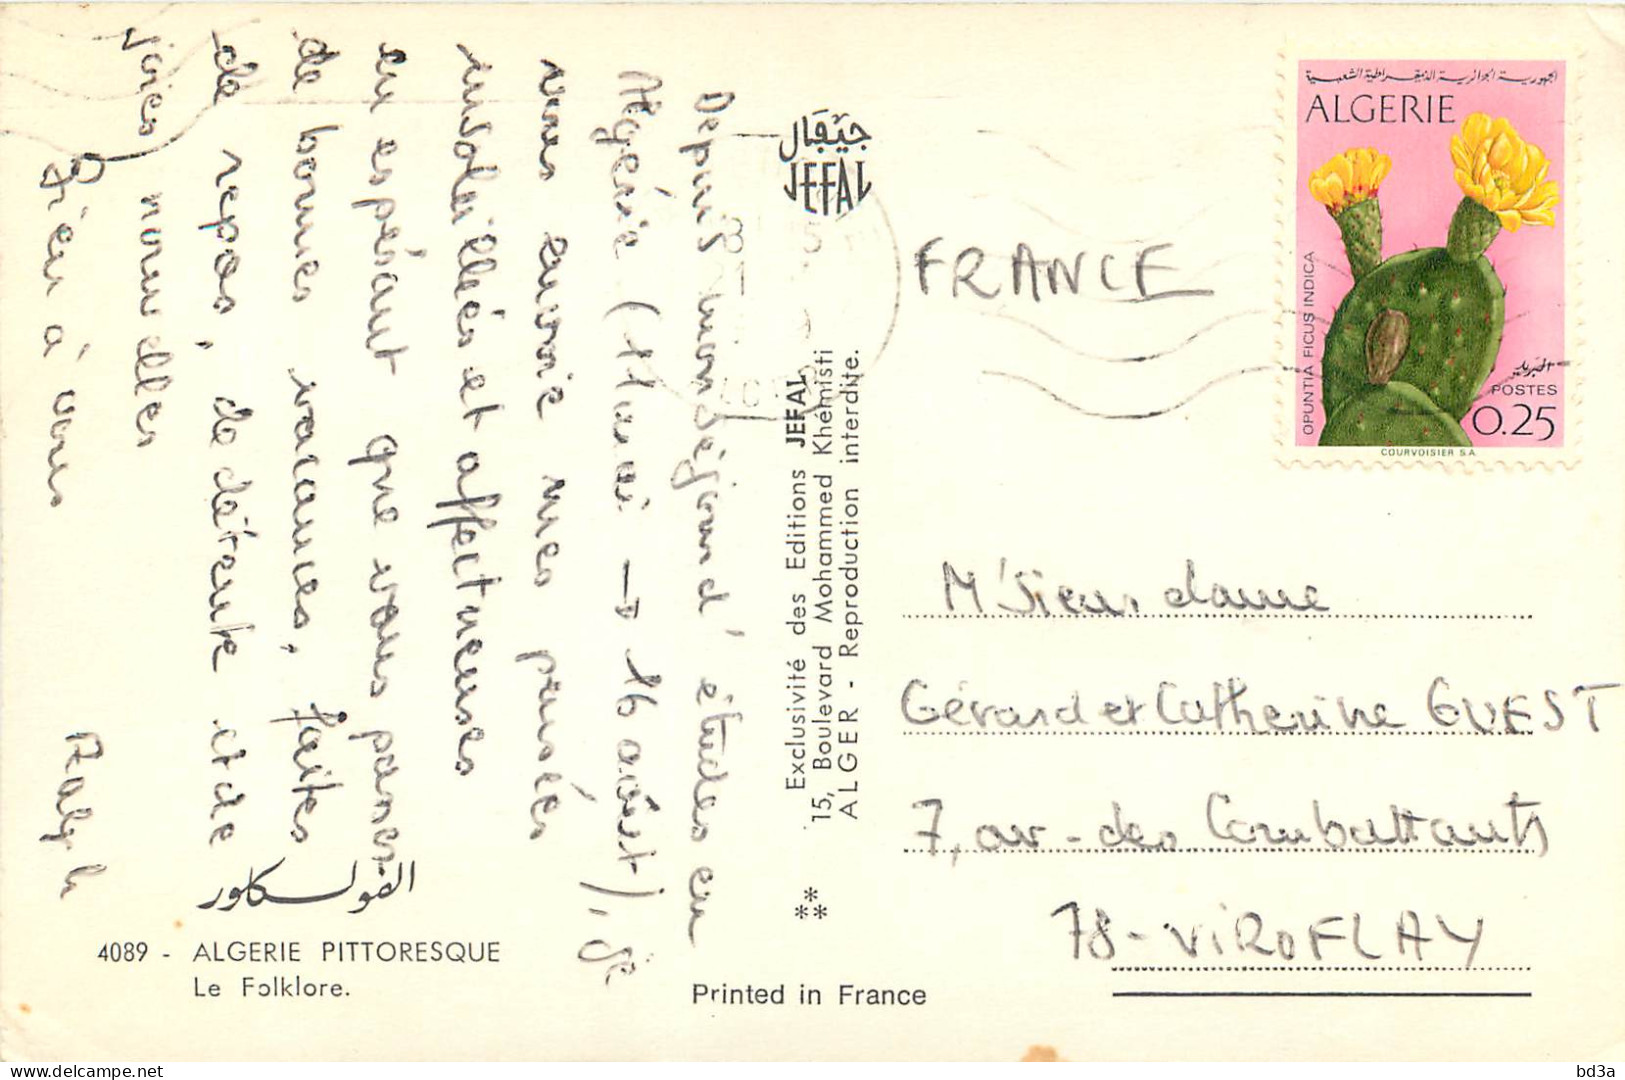 Depuis mon séjour d'études en
Algérie (11 août → 16 août), je
vous envoie mes pensées
ensoleillées et affectueuses
en espérant que vous passez
de bonnes vacances, faites
de repos, de détente et de
joies nouvelles
Bien à vous
Ralph
الفولكلور
4089 - ALGERIE PITTORESQUE
Le Folklore.
Printed in France
جيفال
JEFAL
Exclusivité des Editions JEFAL
15, Boulevard Mohammed Khémisti
ALGER - Reproduction interdite.
FRANCE
الجمهورية الجزائرية الديمقراطية الشعبية
ALGERIE
OPUNTIA FICUS INDICA
البريد
POSTES
0.25
COURVOISIER S.A.
M'Sieur dame
Gérard et Catherine GUEST
7, av - des Combattants
78 - VIROFLAY
delcampe.net
bd3a